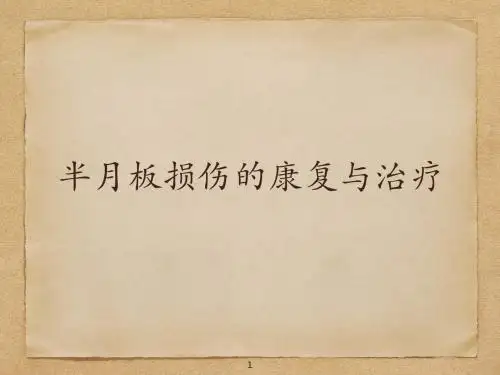 半月板损伤的康复与治疗
1